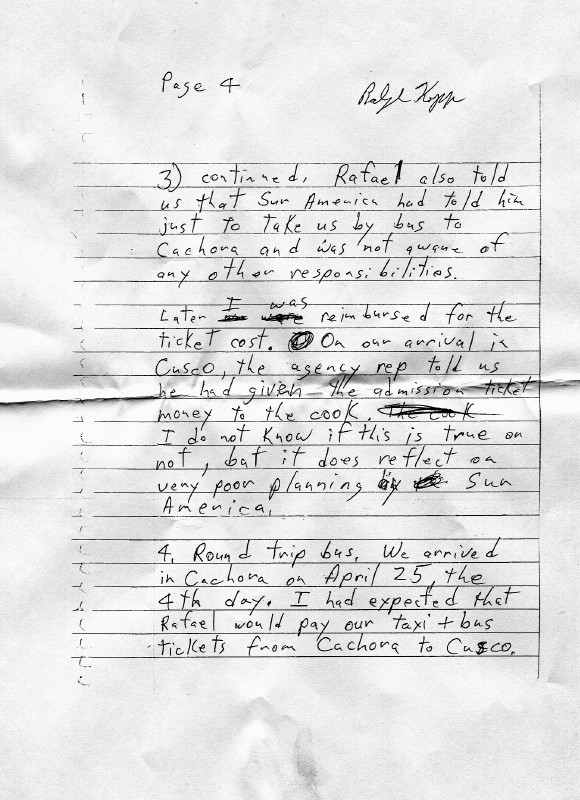 Page 4
Ralph Kopp
3) continued. Rafael also told
us that Sun America had told him
just to take us by bus to
Cachora and was not aware of
any other responsibilities.
Later I was reimbursed for the
ticket cost. On our arrival in
Cusco, the agency rep told us
he had given the admission ticket
money to the cook. The cook
I do not know if this is true or
not, but it does reflect on
very poor planning by Sun
America.
4. Round trip bus. We arrived
in Cachora on April 25, the
4th day. I had expected that
Rafael would pay our taxi + bus
tickets from Cachora to Cusco.